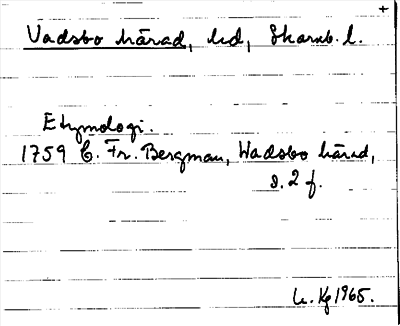 +
Vadsbo härad, hd, Skarab. l.
Etymologi.
1759 C. Fr. Bergman, Wadsbo härad,
s. 2 f.
Kg 1965.